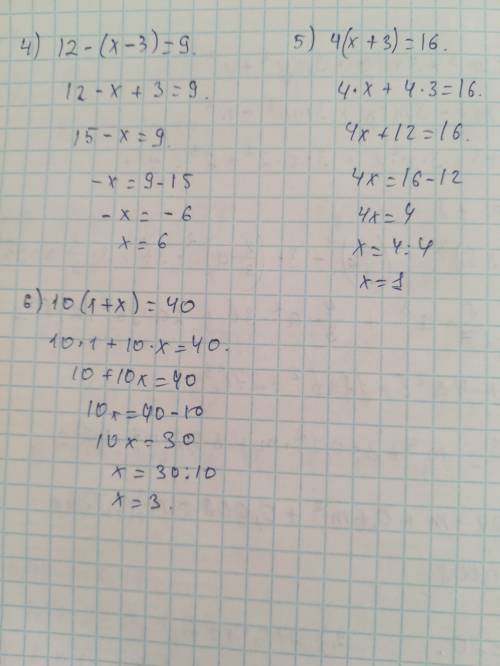 4) 12-(x-3)=9.
12-x+3=9.
15-x=9.
-x=9-15
-x=-6
x=6
5) 4(x+3)=16.
4·x+4·3=16.
4x+12=16.
4x=16-12
4x=4
x=4:4
x=1
6) 10(1+x)=40
10·1+10·x=40.
10+10x=40
10x=40-10
10x=30
x=30:10
x=3.